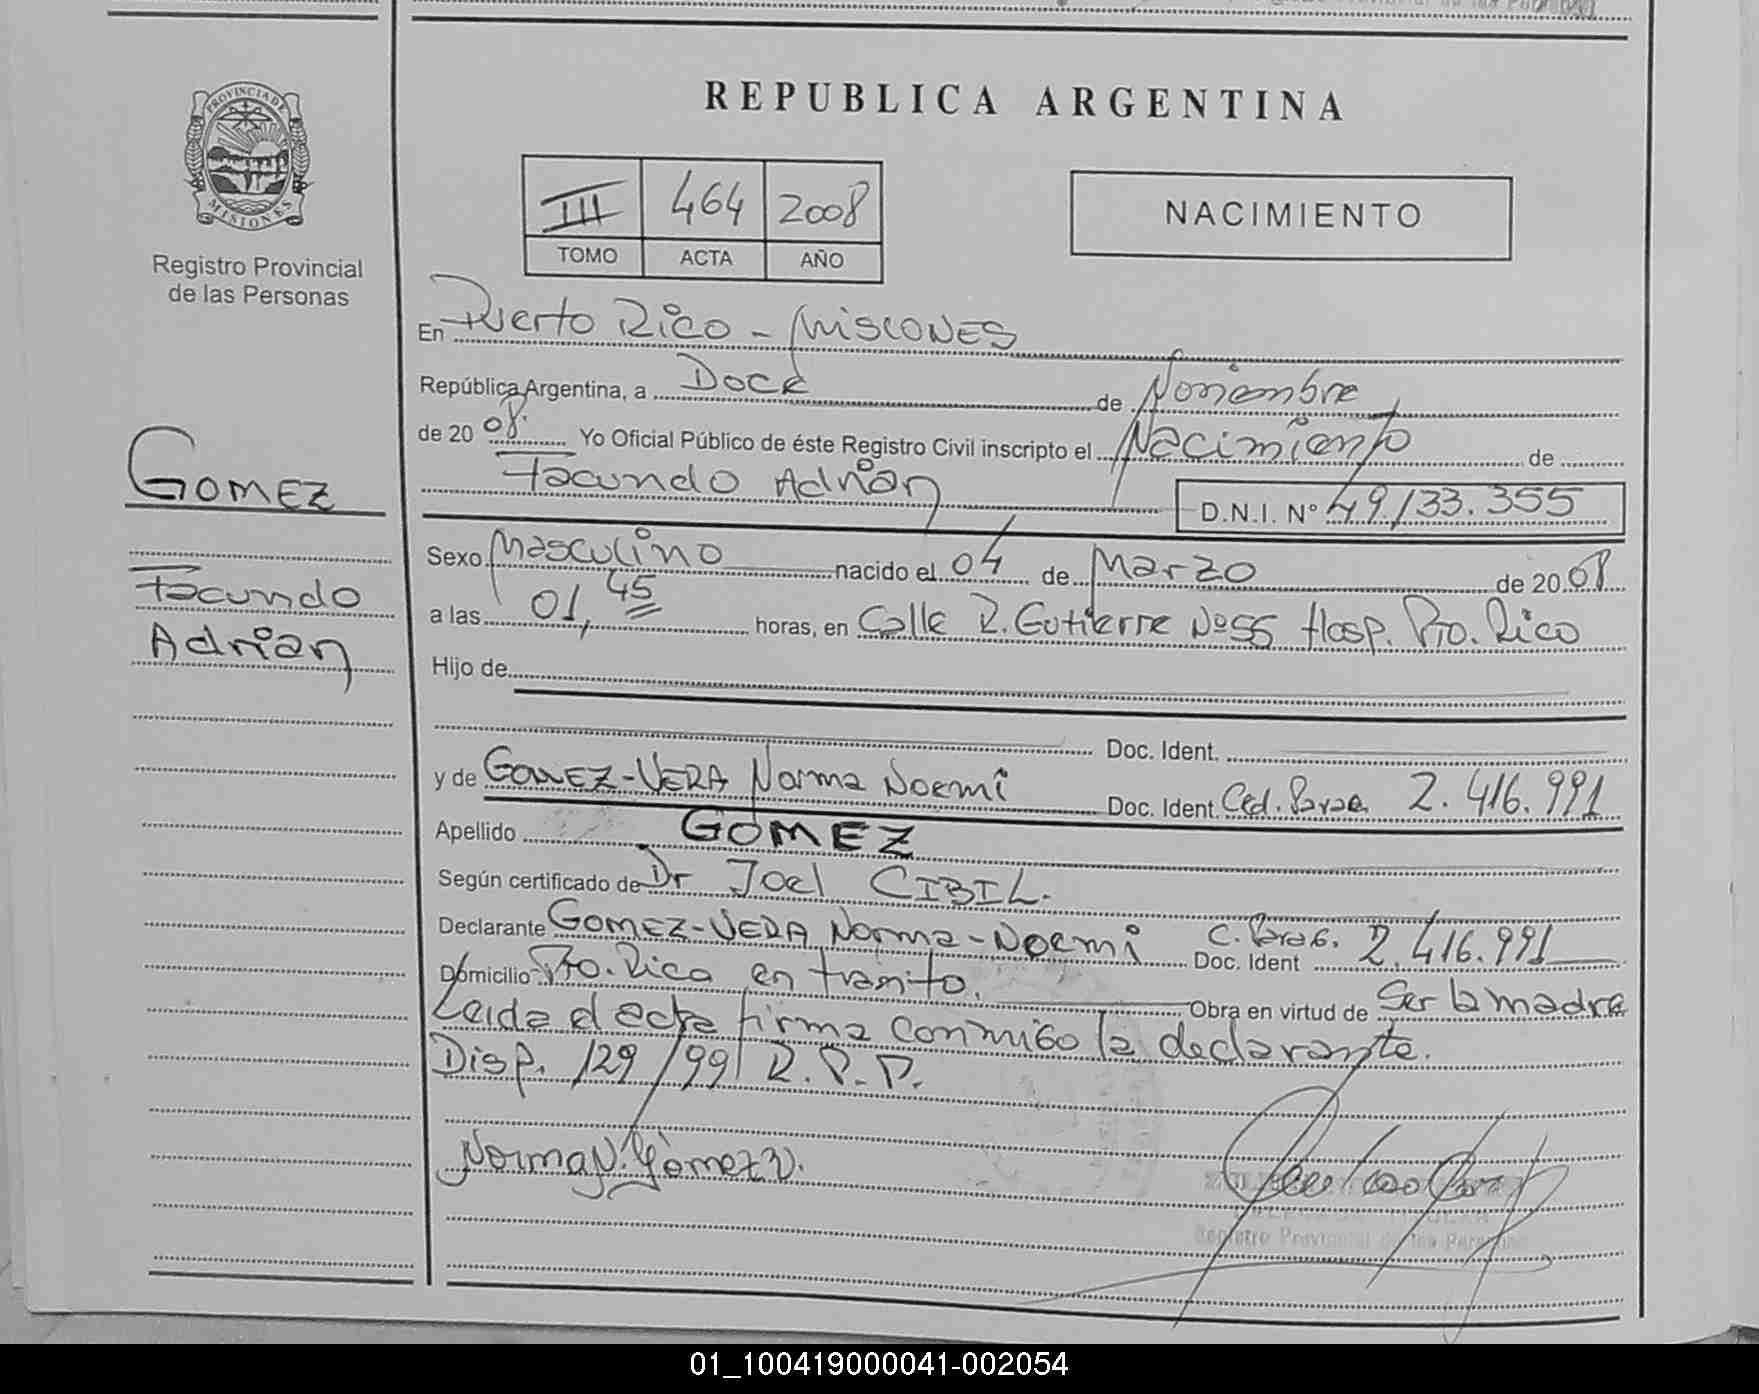 REPUBLICA ARGENTINA
PROVINCIA DE
MISIONES
Registro Provincial
de las Personas
III 464 2008
TOMO ACTA AÑO
NACIMIENTO
En Puerto Rico - Misiones
República Argentina, a Doce de Noviembre
de 20 08. Yo Oficial Público de éste Registro Civil inscripto el Nacimiento de
Facundo Adrián D.N.I. N° 49.133.355
GOMEZ
Facundo
Adrian
Sexo Masculino nacido el 04 de Marzo de 20 08
a las 01,45 horas, en Calle R. Gutierre Nº 55 Hosp. Pto. Rico
Hijo de
Doc. Ident.
y de GOMEZ-VERA Norma Noemí Doc. Ident. Ced. Parag. 2.416.991
Apellido GOMEZ
Según certificado de Dr Joel CIBIL.
Declarante GOMEZ-VERA Norma-Noemi Doc. Ident C. Parag. 2.416.991
Domicilio Pto. Rico en transito. Obra en virtud de Ser la madre
Leida el acta firma conmigo la declarante.
Disp. 129/99 R.P.P.
Norma N. Gómez V.
Registro Provincial de las Personas
01_100419000041-002054